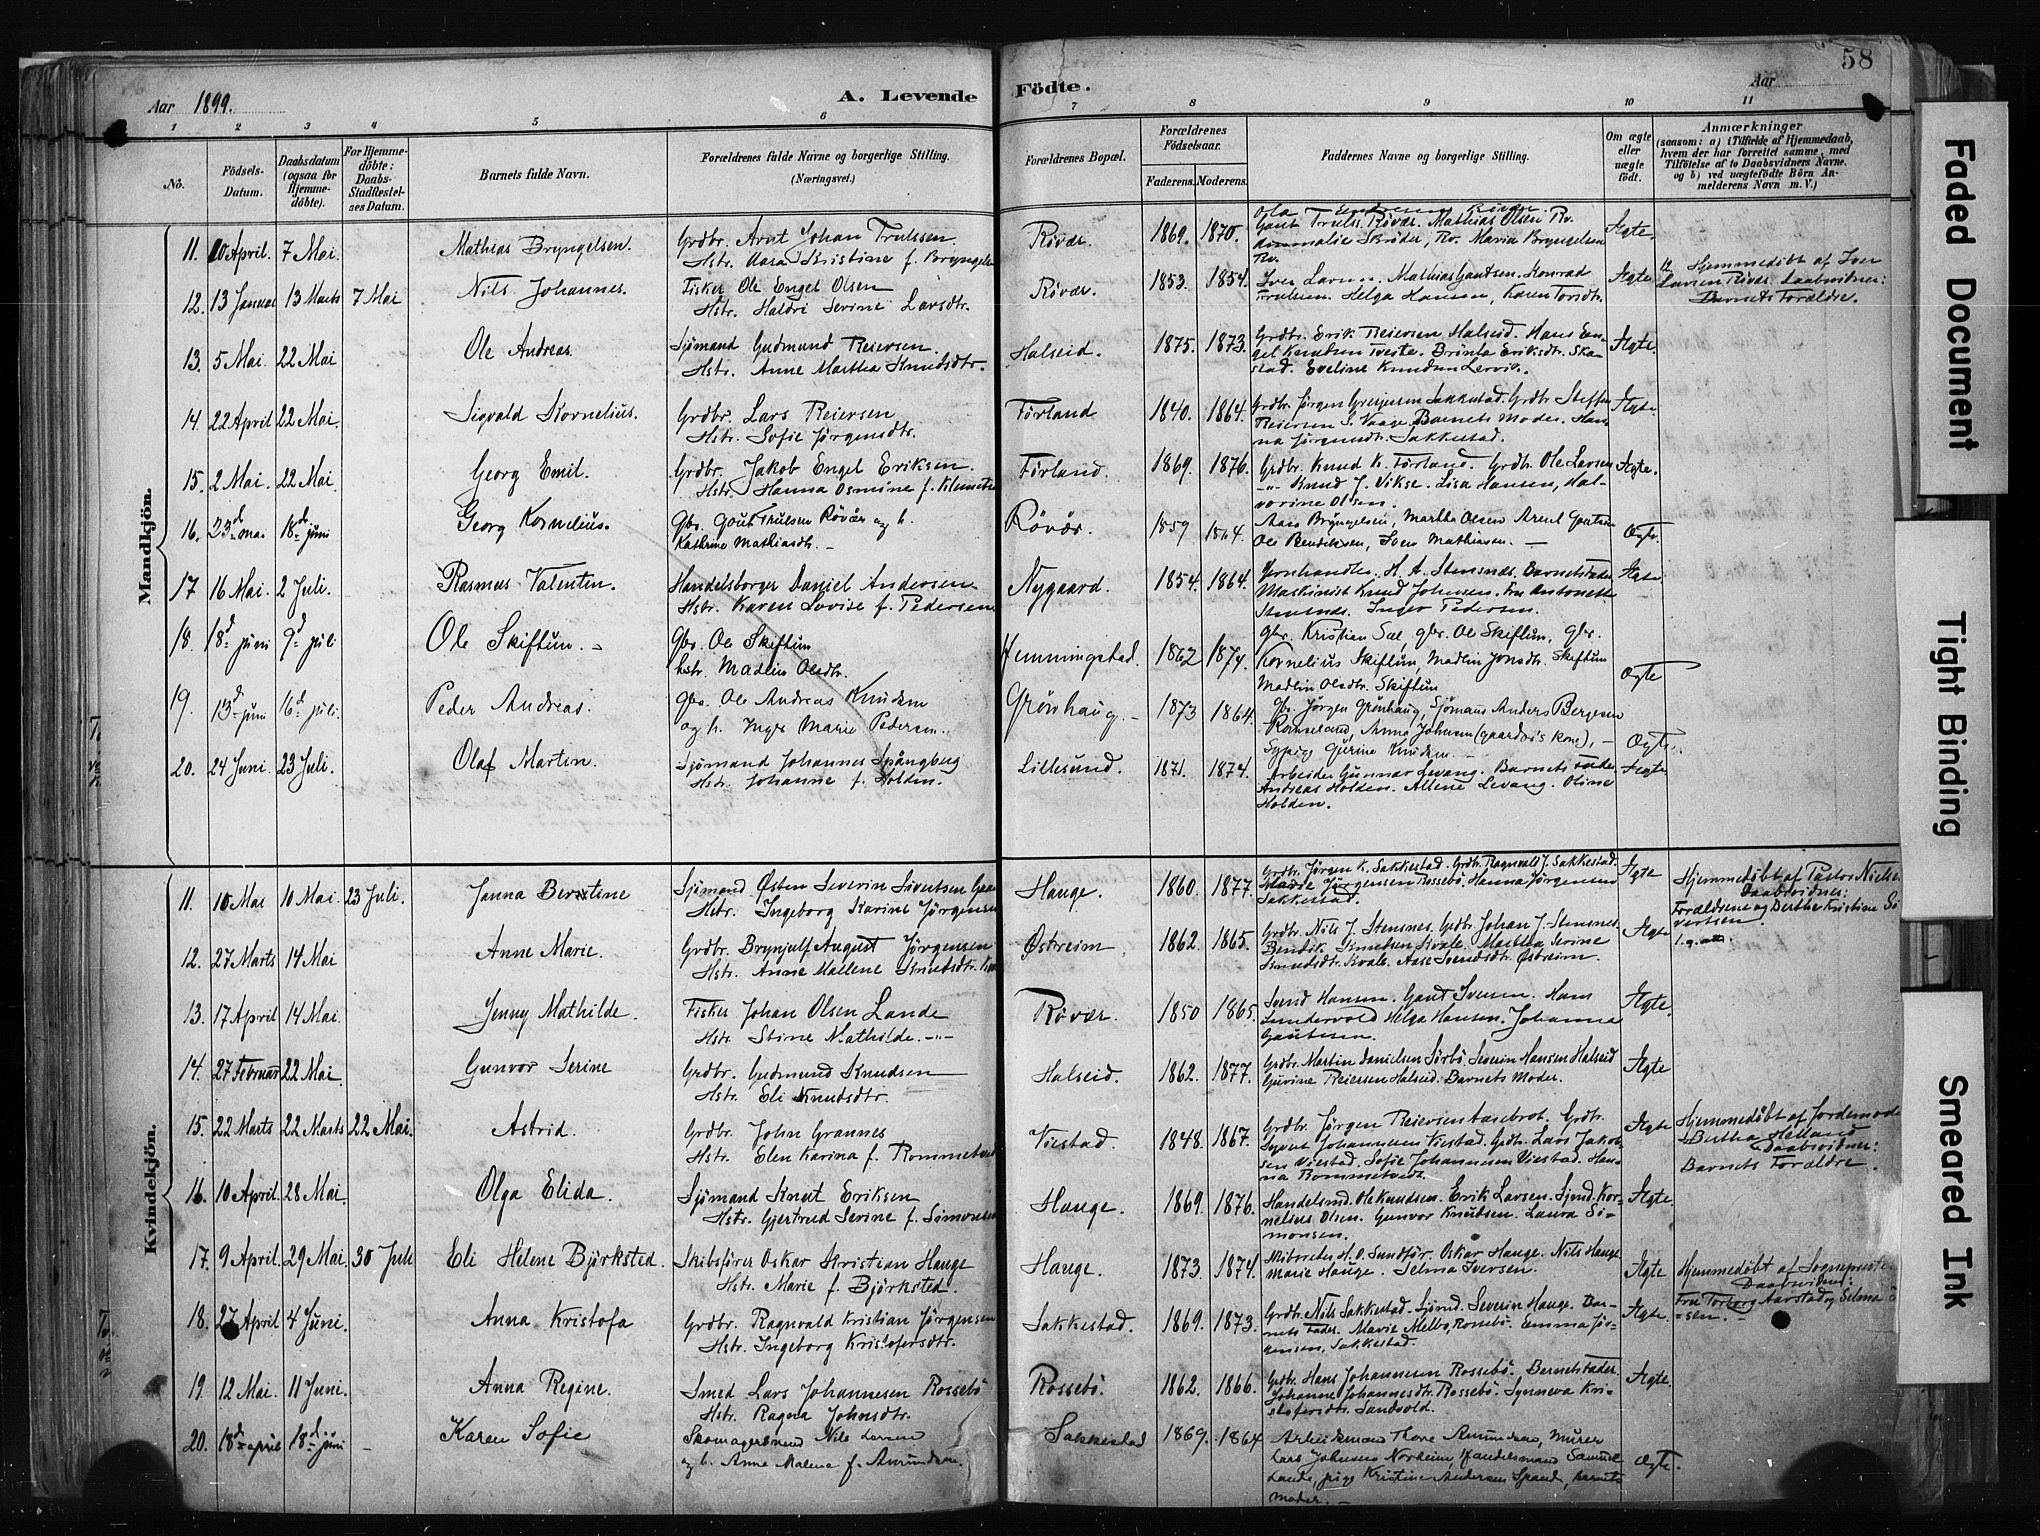 58
Aar 1899.
A. Levende Födte.
Aar
1 2 3 4 5 6 7 8 9 10 11
No.
Födsels-Datum.
Daabsdatum (ogsaa for Hjemme-döbte).
For Hjemme-döbte: Daabs-Stadfæstel-ses Datum.
Barnets fulde Navn.
Forældrenes fulde Navne og borgerlige Stilling.
(Næringsvei.)
Forældrenes Bopæl.
Forældrenes Födselsaar.
Faderens. Moderens.
Faddernes Navne og borgerlige Stilling.
Om ægte eller uægte födt.
Anmærkninger
(saasom: a) i Tilfælde af Hjemmedaab, hvem der har forrettet samme, med Tilföielse af to Daabsvidners Navne, og b) ved uægtefödte Börn An-melderens Navn m. V.)
Mandkjön.
11. 10 April. 7 Mai. Mathias Bryngelsen. Grdbr. Arnt Johan Trulssen. Hstr. Aasa Kristine f. Bryngels Røvær. 1869. 1870. Gaut Truls. Røvær. Mathias Olsen Rv. Skrøder, Rv. Maria Bryngelsen Rv. Ægte.
12. 13 Januar 13 Marts 7 Mai Nils Johannes. Fisker Ole Engel Olsen Hstr. Haldri Serine Larsdtr. Røvær. 1853. 1854. Iver Larsen. Mathias Gautsen. Konrad Trulssen. Helga Hansen, Karen Torsdtr. Ægte Hjemmedøbt af Iver Larsen Røvær. Daabsvidner: Barnets Forældre.
13. 5 Mai. 22 Mai Ole Andreas. Sjømand Gudmund Reiersen. Hstr. Anne Martha Knudsdtr. Halseid. 1875. 1873. Grdbr. Erik Reiersen Halseid. Hans Engel Knudsen Tveite. Brønla Eriksdtr. Skastad. Eveline Knudsen Lervik. Ægte.
14. 22 April 22 Mai. Sigvald Kornelius. Grdbr. Lars Reiersen Hstr. Sofie Jørgensdtr. Førland 1840. 1864. Grdbr. Jørgen Sakkestad. Grdbr. Steffen Reiersen S. Vaage. Barnets Moder. Hanna Jørgensdtr. Sakkestad. Ægte.
15. 2 Mai. 22 Mai. Georg Emil. Grdbr. Jakob Engel Eriksen. Hstr. Hanna Osmine f. Førland. 1869. 1876. Grdbr. Knud K. Førland. Grdbr. Ole Larsen -"- Knud J. Vikse. Lisa Hansen, Halvorine Olsen. Ægte.
16. 23d mai 18d juni Georg Kornelius. Gbr. Gout Trulsen Røvær og h. Kathrine Mathiasdtr. Røvær. 1859 1864. Aasa Bryngelsen, Martha Olsen Arent Goutsen Ole Bendiksen, Iver Mathiasen. Ægte.
17 16 Mai. 2 Juli. Rasmus Valentin. Handelsborger Daniel Andersen Hstr. Karen Lovise f. Pedersen Nygaard. 1854. 1864. Jernhandler H. A. Stensnæs. Barnets Fader Maskinist Knud Johnsen. Fru Antonette Stensnæs. Inger Pedersen. Ægte
18. 18d juni 9d juli Ole Skiftun. Gbr. Ole Skiftun hstr. Madlin Olsdtr. Hemmingstad. 1862 1874. gbr. Kristian Sæl, gbr. Ole Skiftun, gbr. Kornelius Skiftun, Madlin Jonsdtr. Skiftun Madlin Olsdtr. Skiftun Ægte
19. 13d juni 16d juli. Peder Andreas. Gbr. Ole Andreas Knudsen og h. Inger Marie Pedersen. Grønhaug. 1873 1864. Gb. Jørgen Grønhaug, Sjømann Anders Bergesen Anna Johnsen (gaardbr's kone), Sypige Gurine Knudsen. Ægte.
20. 24 Juni. 23 Juli. Olaf Martin. Sjømand Johannes Spångberg Hstr. Johanne f. Holden. Lillesund. 1871. 1874. Arbeider Gunnar Levang. Barnets Fader. Andreas Holden. Allene Levang. Oline Holden. Ægte
Kvindekjön.
11. 10 Mai 10 Mai. 23 Juli. Janna Berntine Sjømand Østen Severin Sivertsen Hstr. Ingeborg Karine Jørgensen Hauge. 1860. 1877. Grdbr. Jørgen K. Sakkestad. Grdbr. Ragnvald J. Sakkestad. Jørgensen Rossebø. Hanna Jørgensen Sakkestad. Ægte Hjemmedøbt af Pastor Nielsen Daabsvidner: Forældrene og Berthe Kristine Sivertsen
12. 27 Marts 14 Mai Anne Marie. Grdbr. Brynjulf August Jørgensen Hstr. Anne Mallene Knudsdtr. Østreim. 1862. 1865. Grdbr. Nils J. Stensnes. Grdbr. Johan J. Stensnes. Bendik Knudsen Kvale. Martha Serine Knudsdtr. Kvale. Aase Svendsdtr. Østreim. Ægte
13. 17 April 14 Mai. Jenny Mathilde. Fisker Johan Olsen Lande Hstr. Stine Mathilde. -"- Røvær. 1850 1865. Svend Hansen. Gaut Svensen. Hans Søndervold Helga Hansen. Johanna Gautesen. Ægte.
14. 27 Februar 22 Mai Gunvor Serine Grdbr. Gudmund Knudsen Hstr. Eli Knudsdtr. Halseid. 1862. 1877. Grdbr. Martin Danielsen Sørbø Severin Hansen Halseid Gurine Reiersen Halseid. Barnets Moder. Ægte
15. 22 Marts 22 Marts 22 Mai. Astrid. Grdbr. John Grannes Hstr. Elen Karina f. Rommetvedt Viestad. 1848. 1867. Grdbr. Jørgen Reiersen Aasebrot. Grdbr. Syvert Johannesen Viestad. Grdbr. Lars Jakobsen Viestad. Sofie Johannesen Viestad. Hanna Rommetvedt. Ægte Hjemmedøbt af Jordemoder Bertha Helland Daabsvidner: Barnets Forældre.
16. 10 April. 28 Mai. Olga Elida. Sjømand Knut Eriksen Hstr. Gjertrud Serine f. Simonsen Hauge. 1869. 1876. Handelsmd. Ole Knudsen. Erik Larsen. Sjmd. Kornelius Olsen. Gunvor Knudsen. Laura Simonsen. Ægte.
17. 9 April. 29 Mai. 30 Juli Eli Helene Björksted. Skibsfører Oskar Kristian Hauge Hstr. Marie f. Björksted. Hauge. 1873. 1874. Skibsreder H. O. Sundfør. Oskar Hauge. Nils Hauge Marie Hauge. Selma Iversen. Ægte Hjemmedøbt af Sognepresten Daabsvidner: Fru Torborg Aarstad og Selma Iversen.
18. 27 April 4 Juni. Anna Kristofa Grdbr. Ragnvald Kristian Jørgensen Hstr. Ingeborg Kristofersdtr. Sakkestad. 1869. 1873. Grdbr. Nils Sakkestad. Sjømd. Severin Hauge. Barnets Fader. Marie Melbo, Rossebø. Emma Jørgensen, Sakkestad. Ægte.
19. 12 Mai. 11 Juni. Anna Regine. Smed Lars Johannesen Rossebö Hstr. Ragna Johnsdtr. Rossebö. 1862. 1866. Grdbr. Hans Johannesen Rossebö. Barnets Fader. Johanne Johannesdtr. Rossebö. Synneva Kristofersdtr. Sandvold. Ægte.
20. 18d april 18d juni Karen Sofie Skomagersvend Nils Larsen og h. Anne Malene f. Amundsen. Sakkestad 1869. 1864 Arbeidsmand Thore Amundsen, Murer Lars Johnsen Nordeim, Handelsmand Samuel Lande, pige Kristine Andersen Spanne, barnets moder. Ægte.
Faded Document
Tight Binding
Smeared Ink